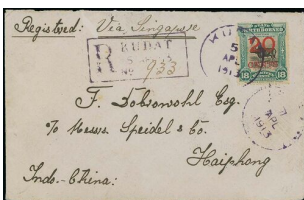 Registered: Via Singapore
KUDAT
R
No 933
KUDAT
5
APL
1913
20
CENTS
18 18
F. Dobsonohl Esq.
c/o Messrs Speidel & Co.
Haiphong
Indo-China:
APL
1913